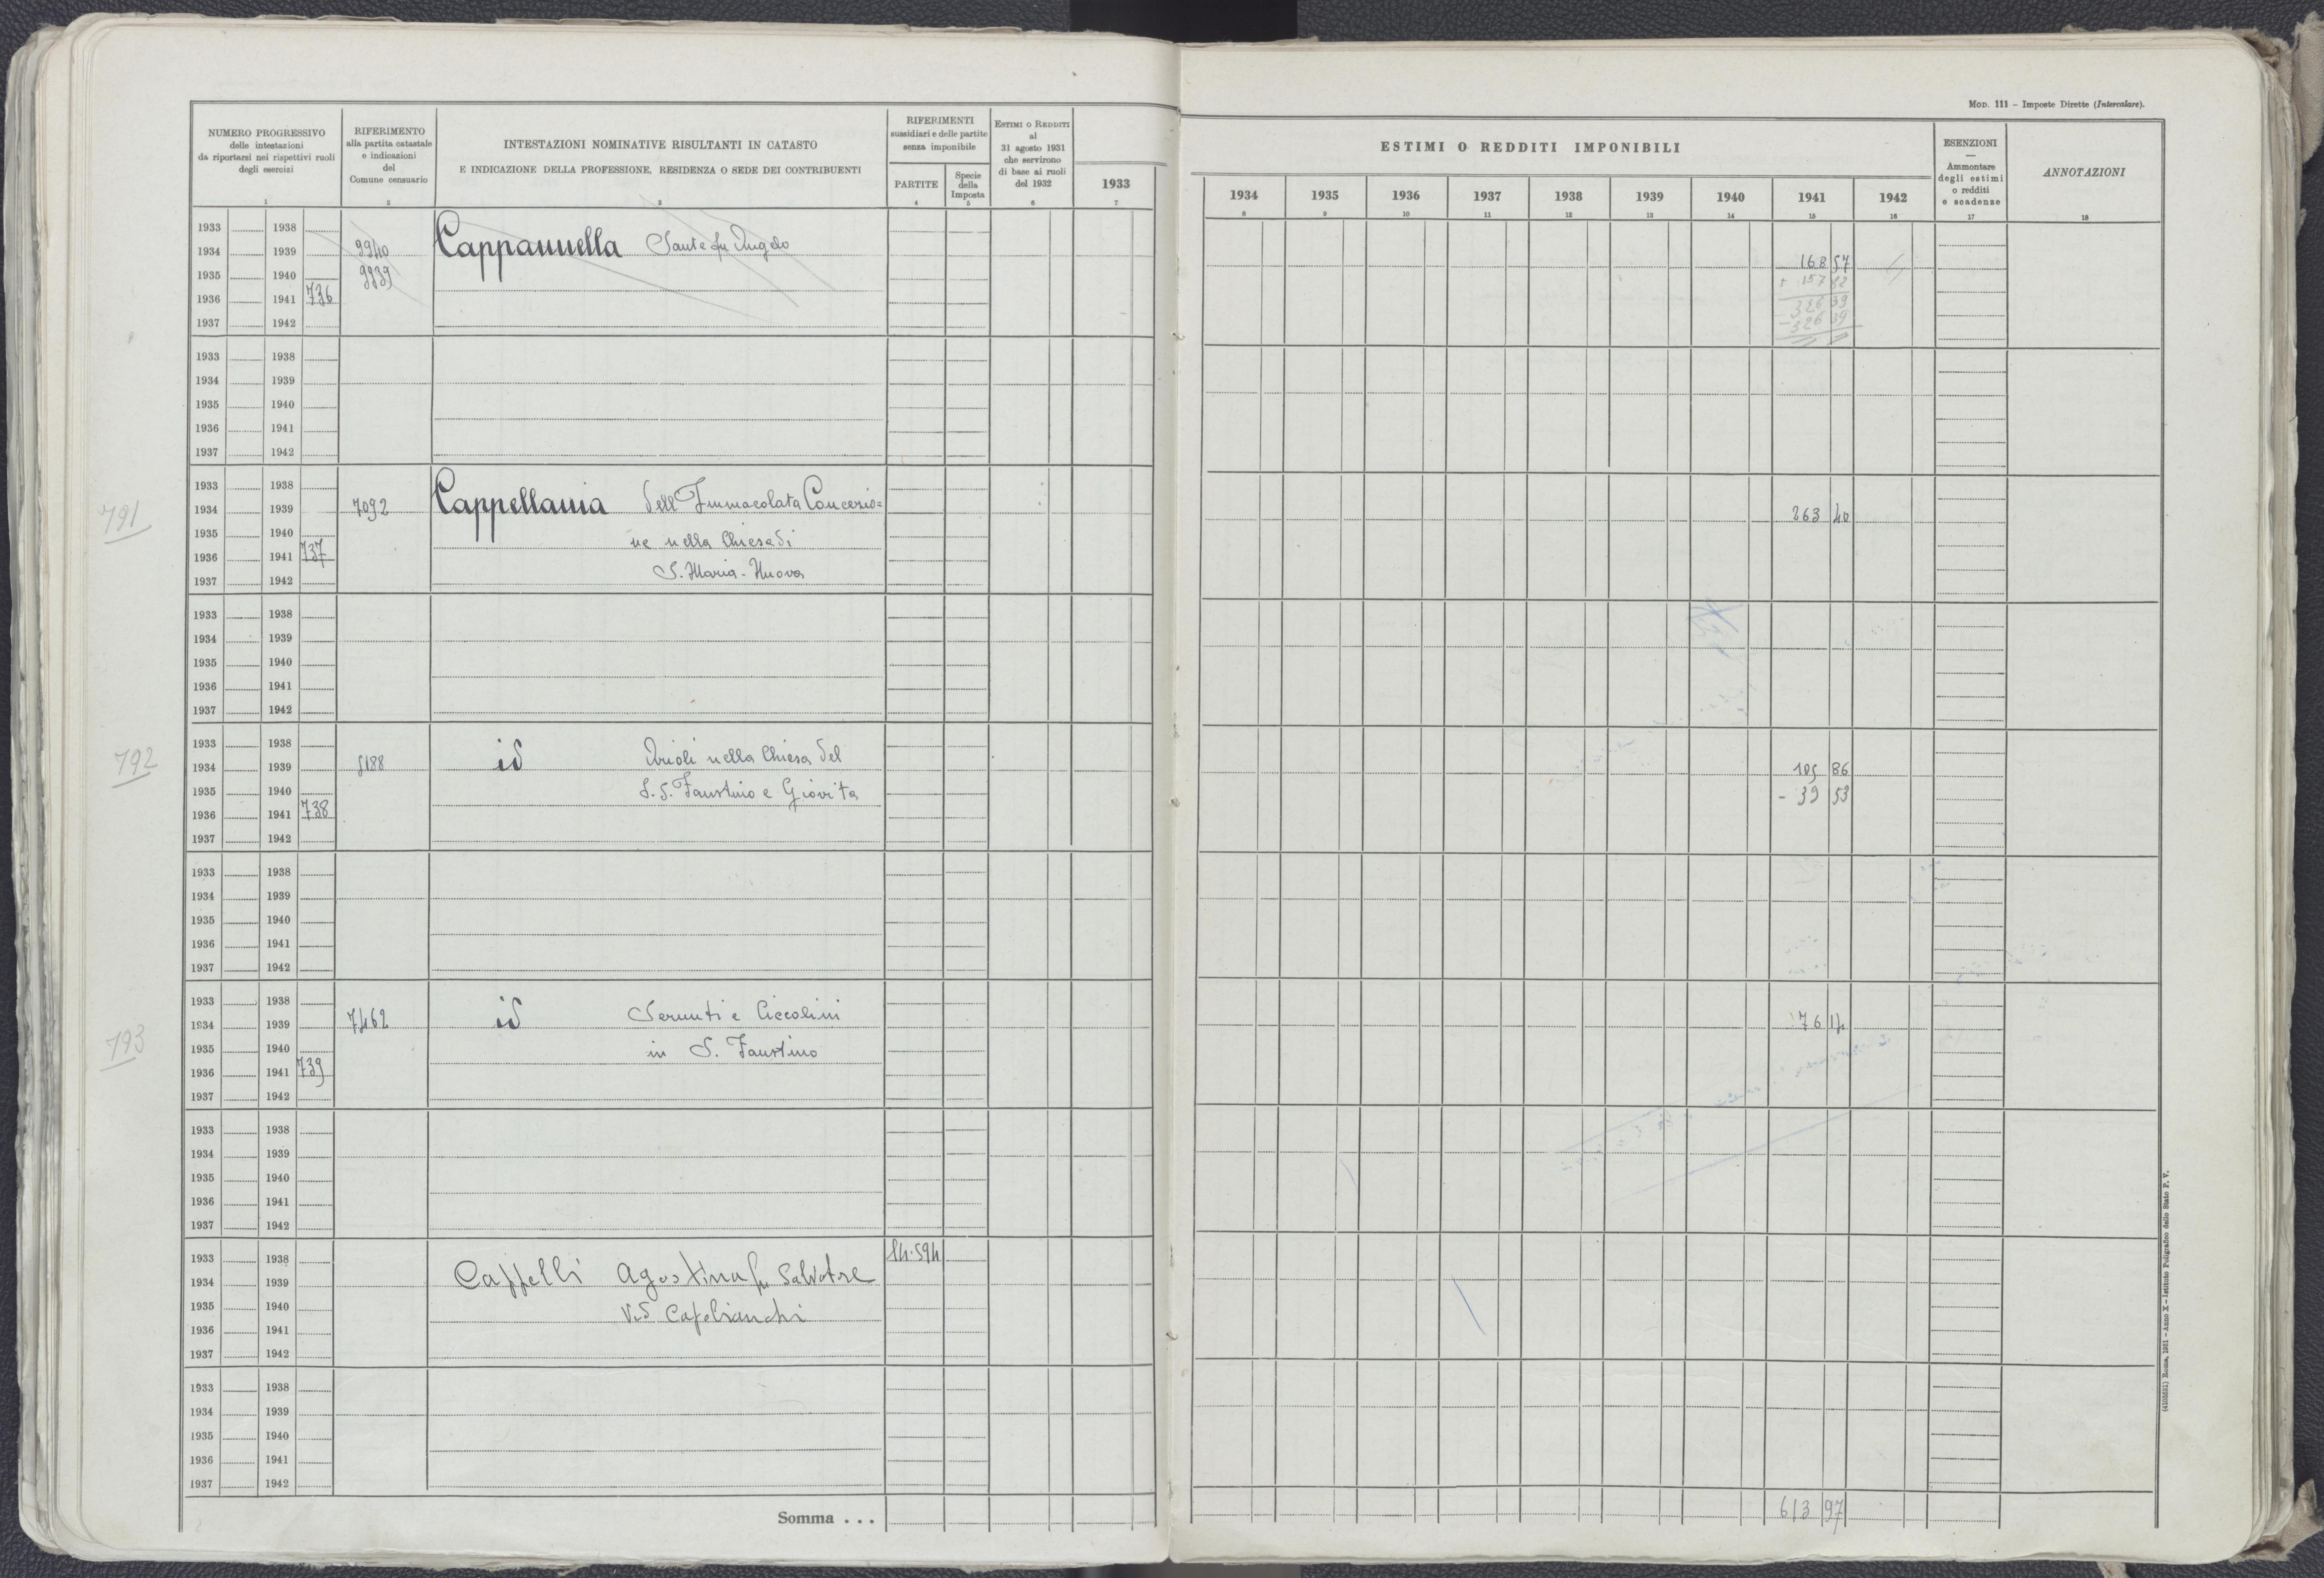 MOD. 111 – Imposte Dirette (Intercalare).
NUMERO PROGRESSIVO
delle intestazioni
da riportarsi nei rispettivi ruoli
degli esercizi
1
RIFERIMENTO
alla partita catastale
e indicazioni
del
Comune censuario
2
INTESTAZIONI NOMINATIVE RISULTANTI IN CATASTO
E INDICAZIONE DELLA PROFESSIONE, RESIDENZA O SEDE DEI CONTRIBUENTI
3
RIFERIMENTI
sussidiari e delle partite
senza imponibile
PARTITE
4
Specie
della
Imposta
5
ESTIMI O REDDITI
al
31 agosto 1931
che servirono
di base ai ruoli
del 1932
6
1933
7
ESTIMI O REDDITI IMPONIBILI
1934 1935 1936 1937 1938 1939 1940 1941 1942
8 9 10 11 12 13 14 15 16
ESENZIONI
—
Ammontare
degli estimi
o redditi
e scadenze
17
ANNOTAZIONI
18
1933 1938
1934 1939 9940 Cappannella Sante fu Angelo 168 57
1935 1940 9939 + 157 82
1936 1941 736 326 39
1937 1942 - 326 39
1933 1938
1934 1939
1935 1940
1936 1941
1937 1942
1933 1938
791 1934 1939 7092 Cappellania dell'Immacolata Concezio= 263 40
1935 1940 ne nella Chiesa di
1936 1941 737
1937 1942 S. Maria - Nuova
1933 1938
1934 1939
1935 1940
1936 1941
1937 1942
1933 1938
792 1934 1939 8188 id Arioli nella Chiesa del 105 86
1935 1940 S.S. Faustino e Giovita - 39 53
1936 1941 738
1937 1942
1933 1938
1934 1939
1935 1940
1936 1941
1937 1942
1933 1938
793 1934 1939 7462 id e Ciccolini 76 14
1935 1940 in S. Faustino
1936 1941 739
1937 1942
1933 1938
1934 1939
1935 1940
1936 1941
1937 1942
1933 1938 14.594
1934 1939 Cappelli Agostina fu Salvatore
1935 1940 Ved Capobianchi
1936 1941
1937 1942
1933 1938
1934 1939
1935 1940
1936 1941
1937 1942
Somma . . . 613 97
(4105531) Roma, 1931 – Anno X – Istituto Poligrafico dello Stato P. V.